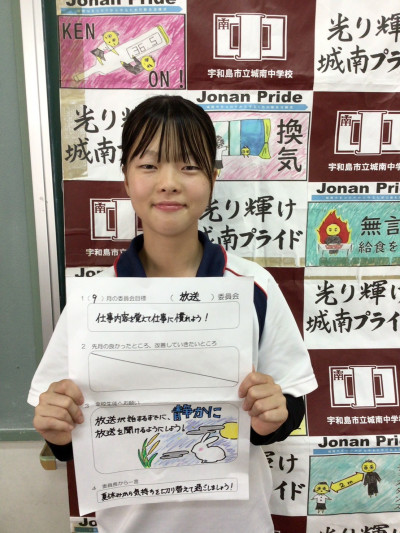 Jonan Pride
KEN
ON!
36.5
光り輝け
城南プライド
南
中
宇和島市立城南中学校
光り輝け
城南プライド
Jonan Pride
換気
南
中
宇和島市立城南中学校
南
中
宇和島市立城南中学校
光り輝け
城南プライド
Jonan Pride
無言
給食を
光り輝け
城南プライド
南
中
Jonan Pride
2m
光り輝け
城南プライド
1 ( 9 ) 月の委員会目標 ( 放送 ) 委員会
仕事内容を覚えて仕事に慣れよう!
2 先月の良かったところ、改善していきたいところ
3 全校生徒へのお願い
放送が始まるまでに、静かに
放送を聞けるようにしよう!
4 委員長から一言
夏休みから気持ちを切り替えて過ごしましょう!